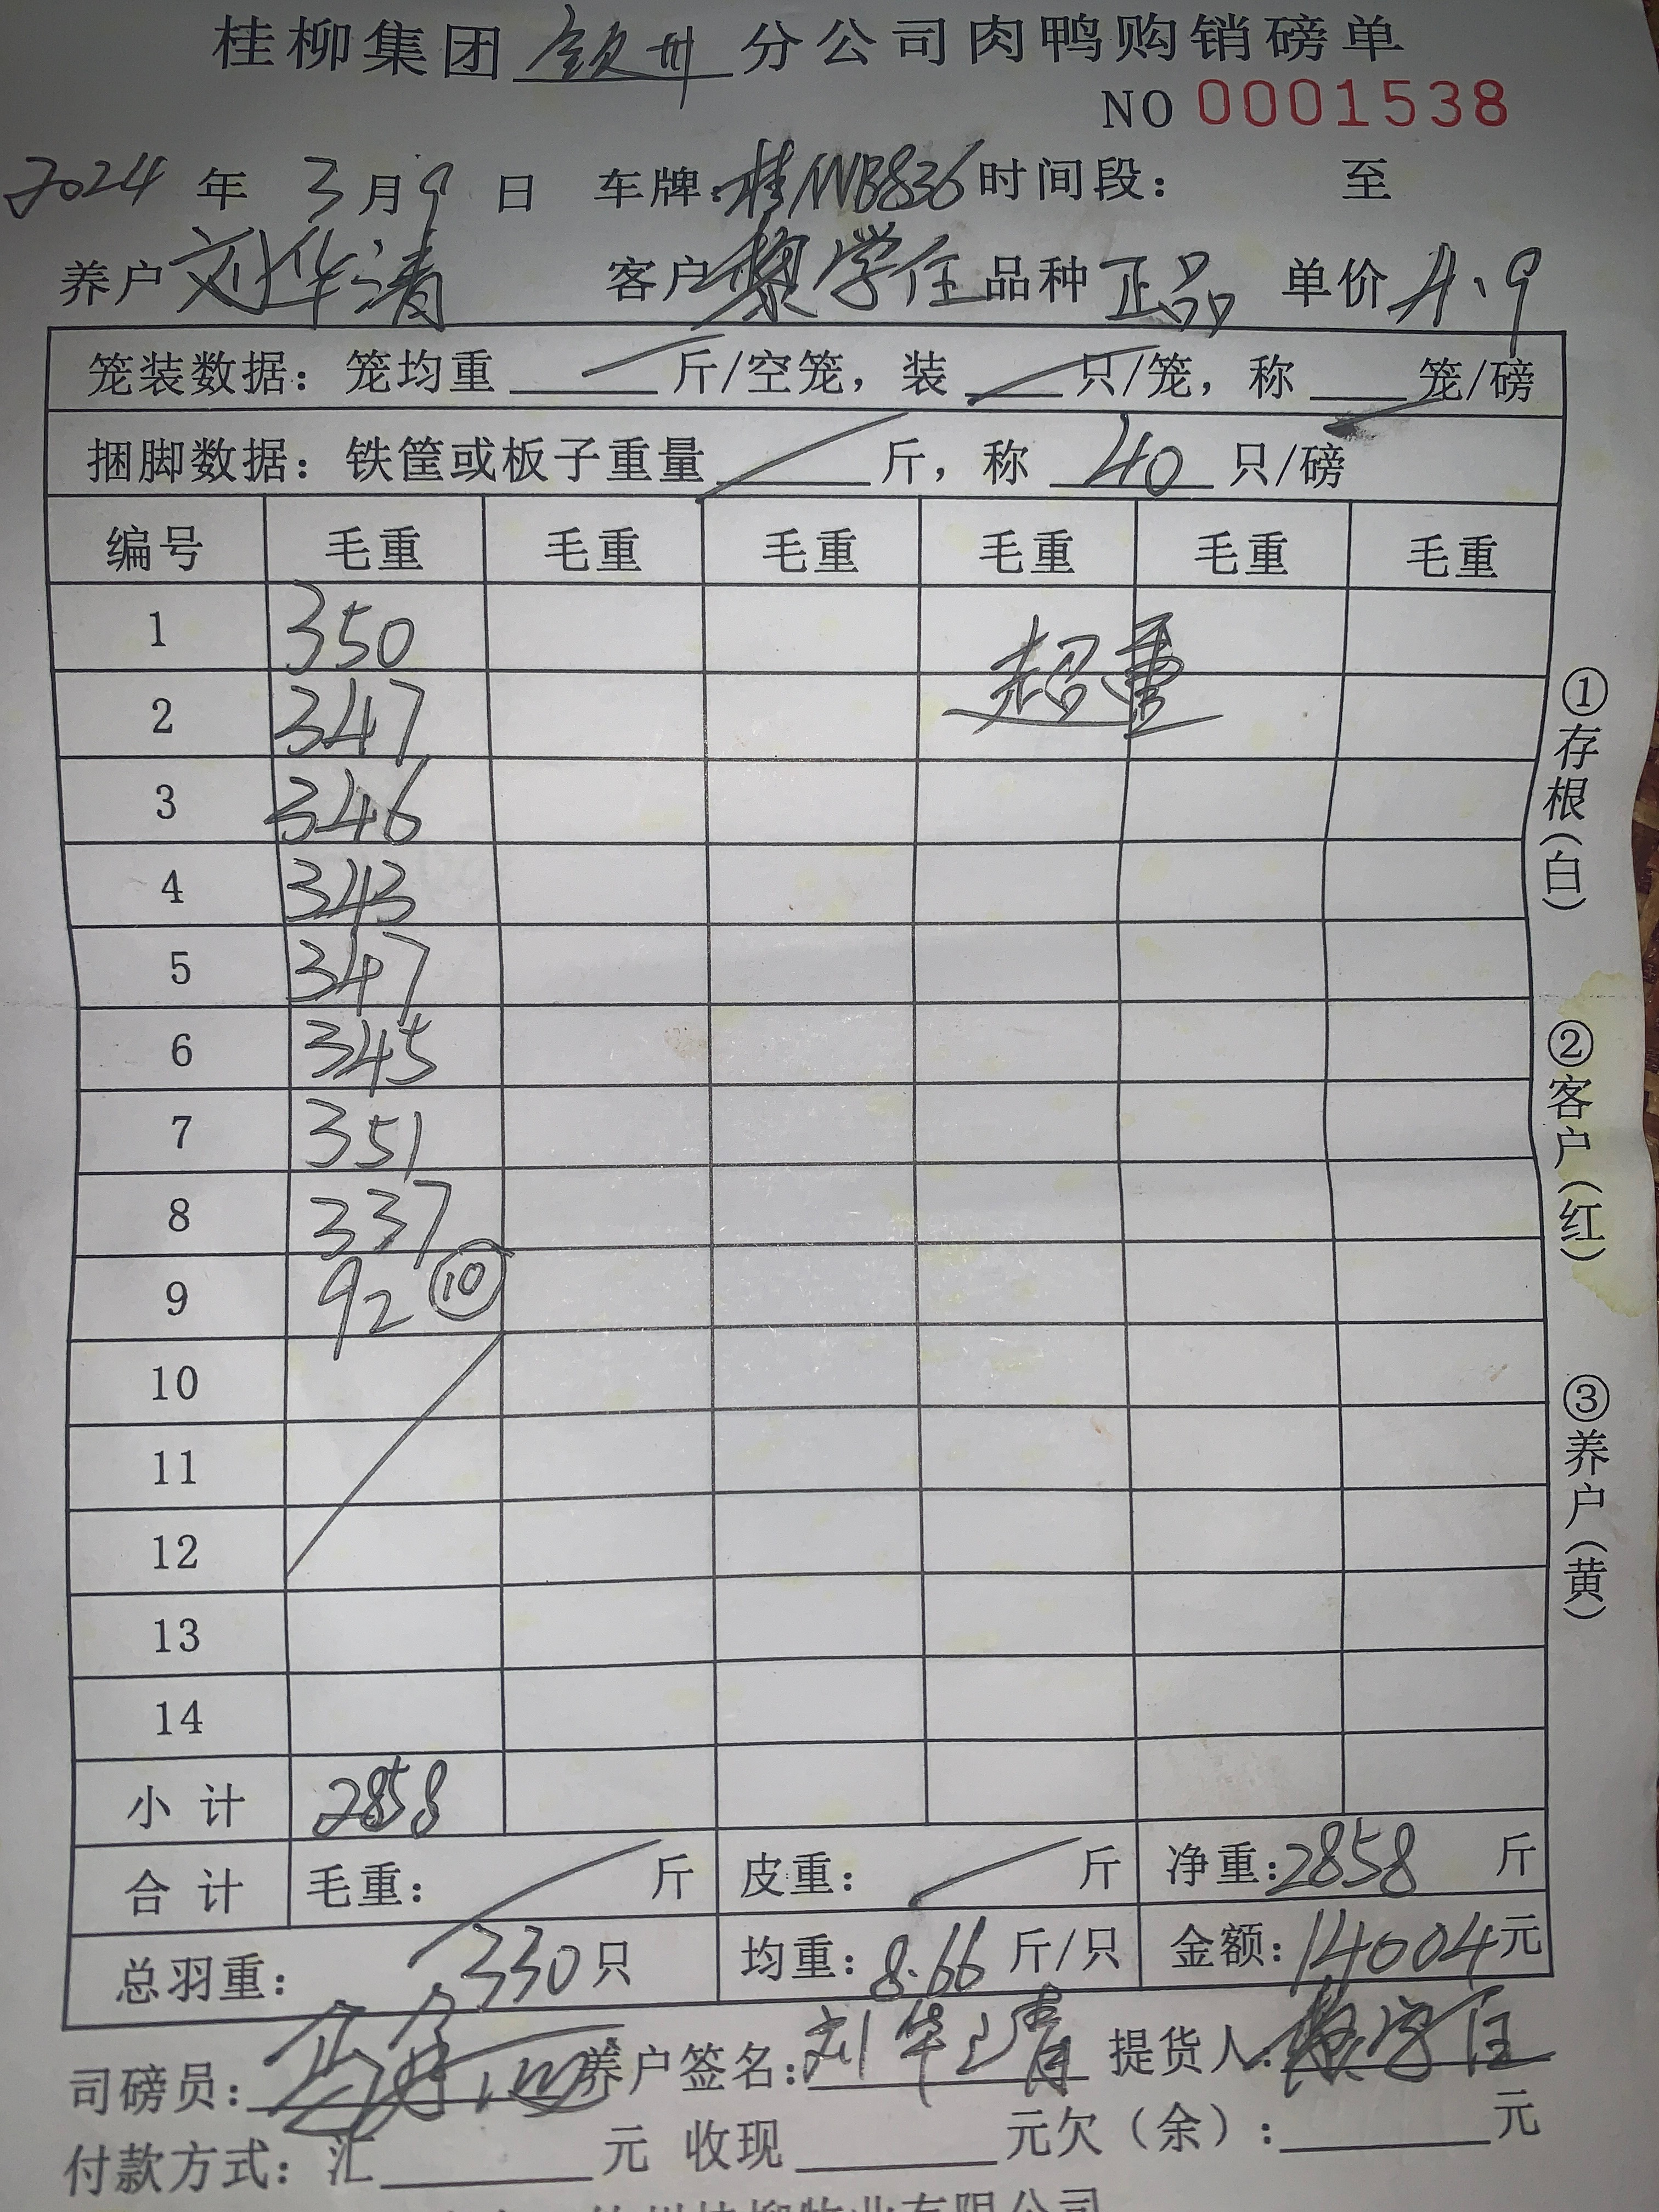 桂柳集团 钦州 分公司肉鸭购销磅单
NO 0001538
2024 年 3 月 9 日 车牌：桂NVB836 时间段： 至
养户 刘华清 客户 黎学任 品种 正品 单价 4.9
笼装数据：笼均重 斤/空笼，装 只/笼，称 笼/磅
捆脚数据：铁筐或板子重量 斤，称 40 只/磅
编号 毛重 毛重 毛重 毛重 毛重 毛重
1 350
超重
2 347
3 346
4 343
5 347
6 345
7 351
8 337
9 92 ⑩
10
11
12
13
14
小计 2858
合计 毛重： 斤 皮重： 斤 净重：2858 斤
总羽重： 330只 均重：8.66 斤/只 金额：14004元
司磅员： 养户签名：刘华清 提货人：黎学任
付款方式：汇 元 收现 元欠（余）： 元
①存根（白）
②客户（红）
③养户（黄）